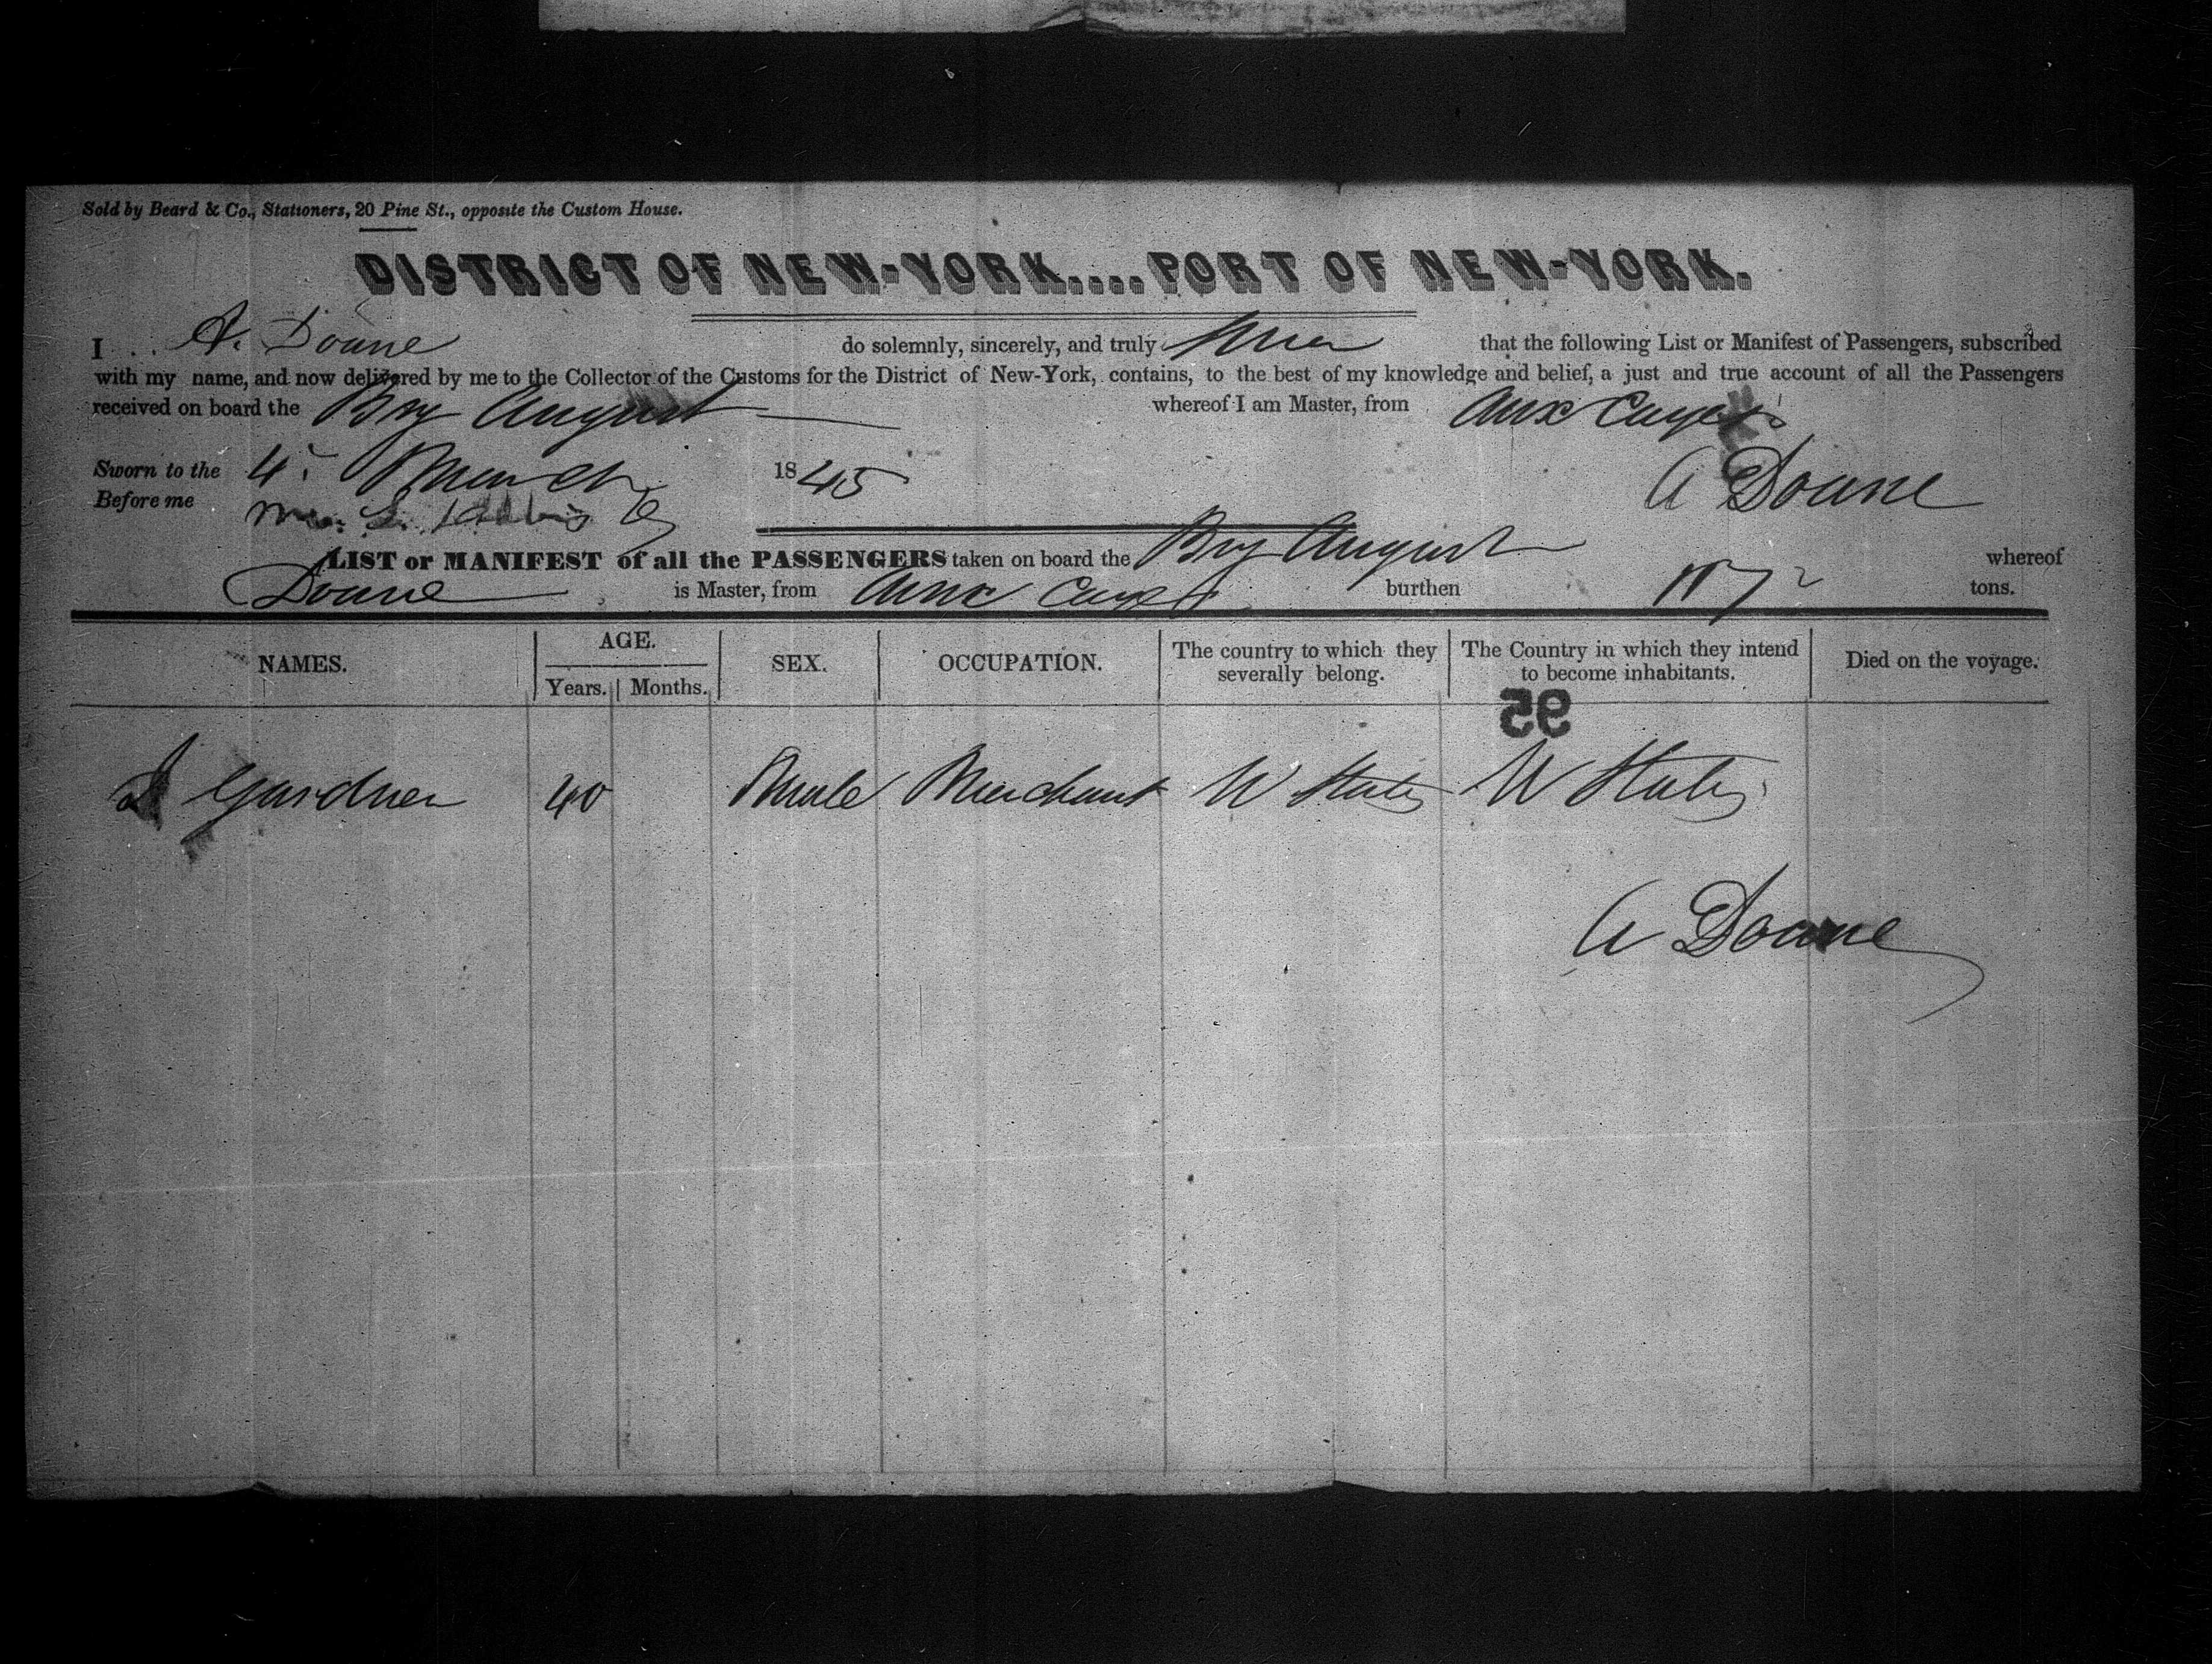 Sold by Beard & Co., Stationers, 20 Pine St., opposite the Custom House.
DISTRICT OF NEW-YORK....PORT OF NEW-YORK.
I . . . A. Doane do solemnly, sincerely, and truly that the following List or Manifest of Passengers, subscribed
with my name, and now delivered by me to the Collector of the Customs for the District of New-York, contains, to the best of my knowledge and belief, a just and true account of all the Passengers
received on board the Brig August whereof I am Master, from Aux Cayes
Sworn to the 4 March 1845 A Doane
Before me
LIST or MANIFEST of all the PASSENGERS taken on board the Brig August whereof
Doane is Master, from Aux Cayes burthen tons.
NAMES. AGE. Years. Months. SEX. OCCUPATION. The country to which they severally belong. The Country in which they intend to become inhabitants. Died on the voyage.
95
Gardner 40 Male Merchant U States U States
A Doane